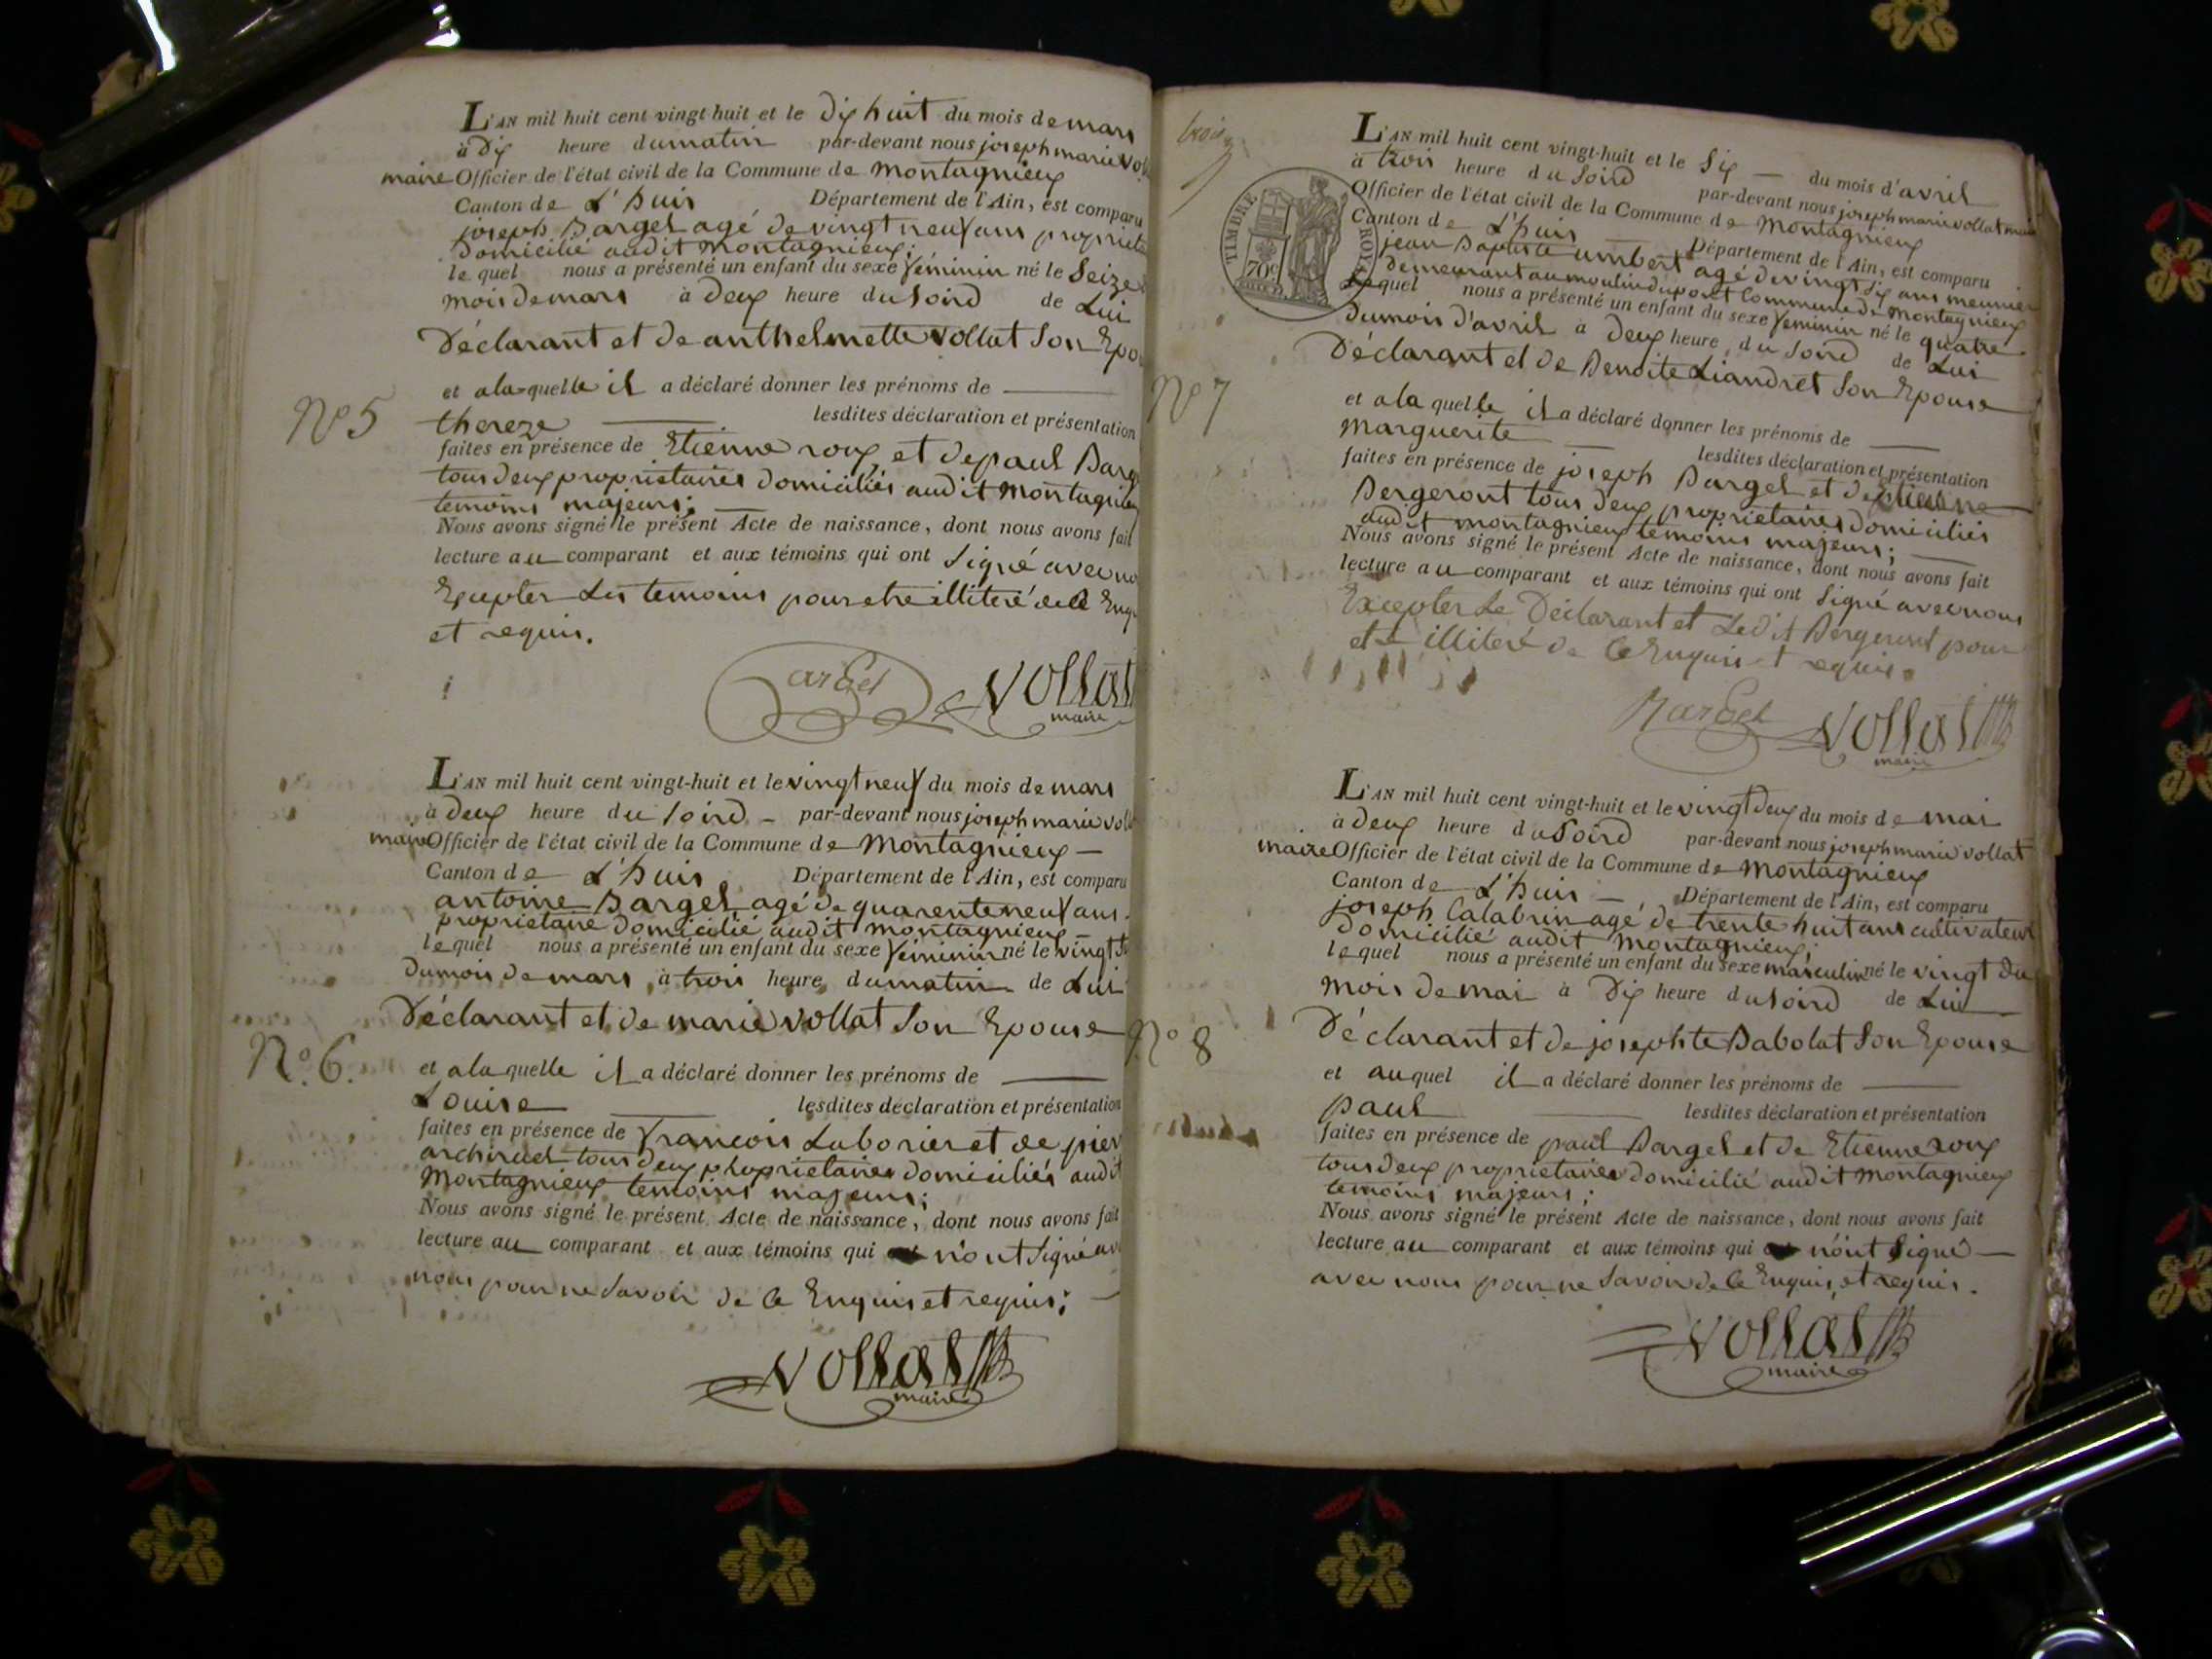 L'AN mil huit cent vingt-huit et le dix huit du mois de mars
à dix heure du matin par-devant nous joseph marie
maire Officier de l'état civil de la Commune de Montagnieux
Canton de L'huis Département de l'Ain, est comparu
joseph Bargel agé de vingt neuf ans
Domicilié audit Montagnieux;
lequel nous a présenté un enfant du sexe féminin né le Seize
mois de mars à deux heure du soird de Lui
Déclarant et de anthelmette vollat son
et a laquelle il a déclaré donner les prénoms de
N° 5
thereze lesdites déclaration et présentation
faites en présence de Etienne roux et de paul
tous deux proprietaires domiciliés audit Montagnieux
temoins majeurs;
Nous avons signé le présent Acte de naissance, dont nous avons fait
lecture au comparant et aux témoins qui ont Signé avec
Excepter Les temoins pour etre illiteré de ce
et requis.
Vollat
maire
L'AN mil huit cent vingt-huit et le vingt neuf du mois de mars
à deux heure du soird par-devant nous joseph marie
maire Officier de l'état civil de la Commune de Montagnieux
Canton de L'huis Département de l'Ain, est comparu
antoine Bargel agé de quarente neuf ans
proprietaire domicilié audit montagnieux
lequel nous a présenté un enfant du sexe féminin né le vingt
du mois de mars à trois heure du matin de Lui
Déclarant et de marie vollat son Epouse
N° 6.
et a laquelle il a déclaré donner les prénoms de
Louise lesdites déclaration et présentation
faites en présence de francois Laborier et de
tous deux proprietaires domiciliés audit
Montagnieux temoins majeurs;
Nous avons signé le présent Acte de naissance, dont nous avons fait
lecture au comparant et aux témoins qui n'ont Signé
nous pour ne Savoir de ce Enquis et requis;
Vollat
maire
TIMBRE ROYAL
70c
L'AN mil huit cent vingt-huit et le six du mois d'avril
à trois heure du soird par-devant nous joseph marie vollat
Officier de l'état civil de la Commune de Montagnieux
Canton de L'huis Département de l'Ain, est comparu
jean Baptiste umbert agé de vingt six ans meunier
demeurant au moulin du pont Commune de Montagnieux
lequel nous a présenté un enfant du sexe féminin né le quatre
du mois d'avril à deux heure du soird de Lui
Déclarant et de Benoite Liandret son Epouse
N° 7
et a la quelle il a déclaré donner les prénoms de
Marguerite lesdites déclaration et présentation
faites en présence de joseph Bargel et de
Bergeront tous deux proprietaires domiciliés
audit montagnieux temoins majeurs;
Nous avons signé le présent Acte de naissance, dont nous avons fait
lecture au comparant et aux témoins qui ont Signé avec nous
Excepter Le Déclarant et Ledit Bergeront pour
etre illiteré de ce Enquis et requis.
Bargel Vollat
maire
L'AN mil huit cent vingt-huit et le vingt deux du mois de mai
à deux heure du soird par-devant nous joseph marie vollat
maire Officier de l'état civil de la Commune de Montagnieux
Canton de L'huis Département de l'Ain, est comparu
joseph Calabrin agé de trente huit ans cultivateur
domicilié audit Montagnieux;
lequel nous a présenté un enfant du sexe masculin né le vingt du
mois de mai à dix heure du soird de Lui
Déclarant et de josephte Babolat son Epouse
N° 8
et auquel il a déclaré donner les prénoms de
paul lesdites déclaration et présentation
faites en présence de paul Bargel et de Etienne roux
tous deux proprietaires domicilié audit Montagnieux
temoins majeurs;
Nous avons signé le présent Acte de naissance, dont nous avons fait
lecture au comparant et aux témoins qui n'ont Signé
avec nous pour ne Savoir de ce Enquis et requis.
Vollat
maire